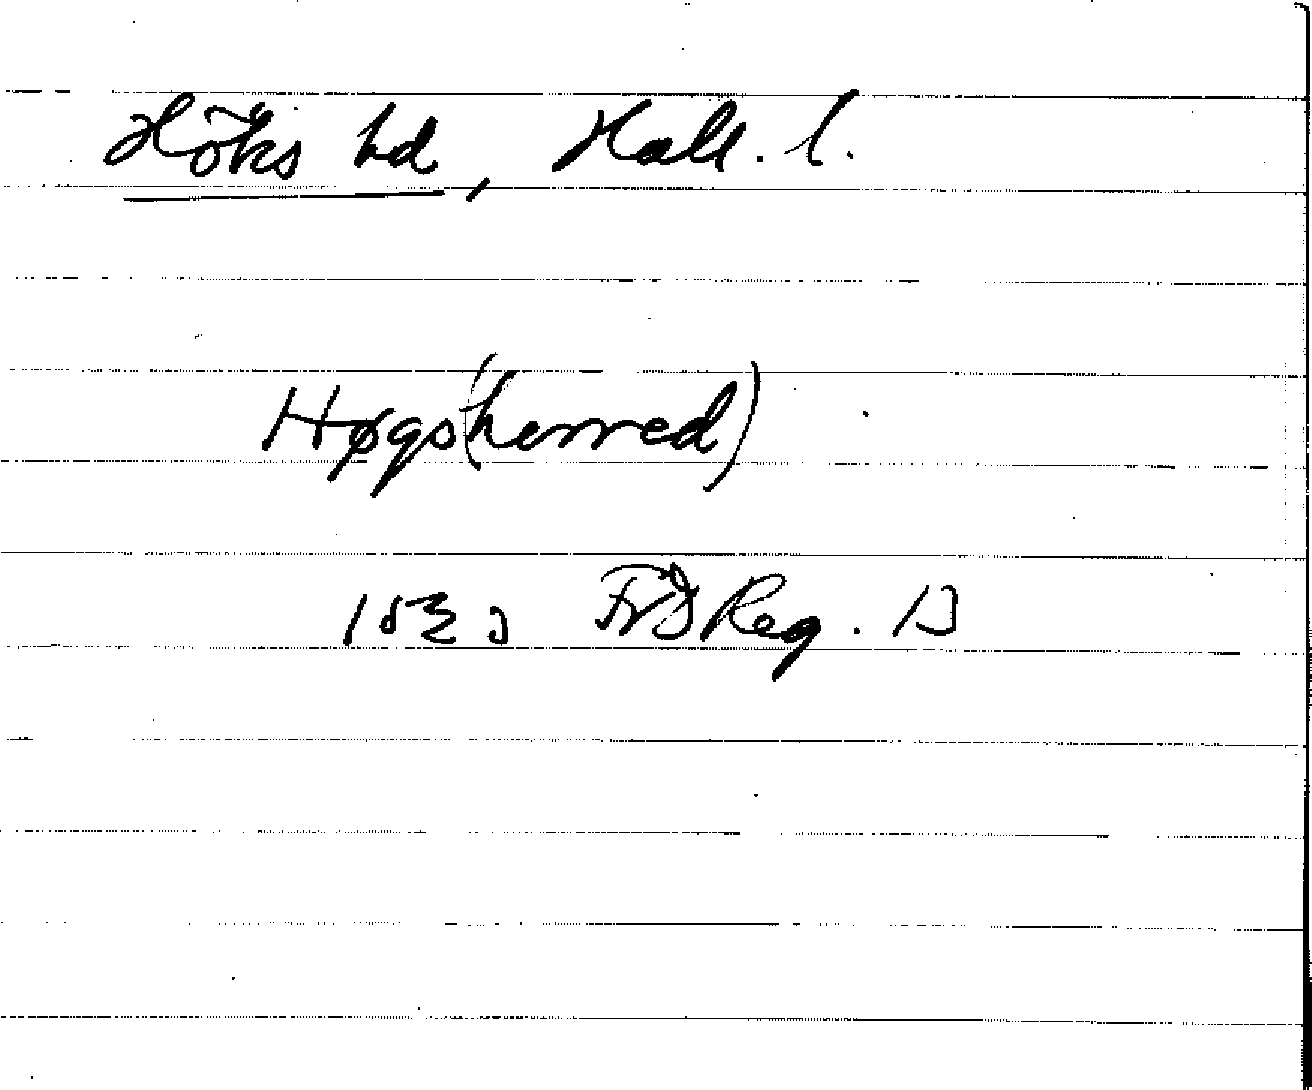 Höks hd, Hall. l.
Høgs(herred)
Reg. 13